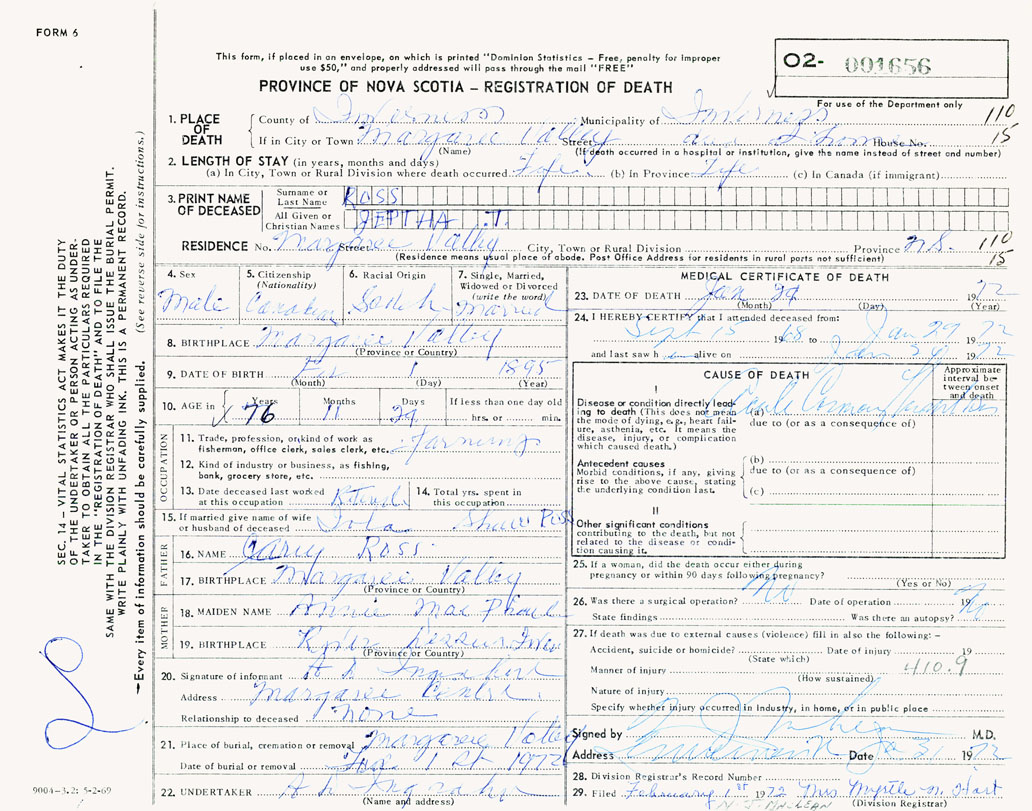 FORM 6
This form, if placed in an envelope, on which is printed "Dominion Statistics - Free, penalty for improper
use $50," and properly addressed will pass through the mail "FREE"
O2- 001656
For use of the Department only
PROVINCE OF NOVA SCOTIA - REGISTRATION OF DEATH
1. PLACE OF DEATH
County of Inverness Municipality of Inverness 110
If in City or Town Margaree Valley Street House No. 15
(Name) (If death occurred in a hospital or institution, give the name instead of street and number)
2. LENGTH OF STAY (in years, months and days)
(a) In City, Town or Rural Division where death occurred Life (b) In Province Life (c) In Canada (if immigrant)
3. PRINT NAME OF DECEASED
Surname or Last Name ROSS
All Given or Christian Names JEPTHA J.
RESIDENCE No. Margaree Valley Street City, Town or Rural Division Province N.S. 110
(Residence means usual place of abode. Post Office Address for residents in rural parts not sufficient) 15
4. Sex Male
5. Citizenship (Nationality) Canadian
6. Racial Origin Scotch
7. Single, Married, Widowed or Divorced (write the word) Married
8. BIRTHPLACE Margaree Valley
(Province or Country)
9. DATE OF BIRTH 1 1895
(Month) (Day) (Year)
10. AGE in Years Months Days If less than one day old
76 11 29 hrs. or min.
OCCUPATION
11. Trade, profession, or kind of work as fisherman, office clerk, sales clerk, etc. Farming
12. Kind of industry or business, as fishing, bank, grocery store, etc.
13. Date deceased last worked at this occupation Retired
14. Total yrs. spent in this occupation
15. If married give name of wife or husband of deceased Shaw Ross
FATHER
16. NAME Ross
17. BIRTHPLACE Margaree Valley
(Province or Country)
MOTHER
18. MAIDEN NAME Annie Mac
19. BIRTHPLACE
(Province or Country)
20. Signature of informant
Address Margaree Centre
Relationship to deceased None
21. Place of burial, cremation or removal Margaree Valley
Date of burial or removal Feb 1st 1972
22. UNDERTAKER
(Name and address)
MEDICAL CERTIFICATE OF DEATH
23. DATE OF DEATH Jan 29 1972
(Month) (Day) (Year)
24. I HEREBY CERTIFY that I attended deceased from:
Sept 15 1968 to Jan 29 1972
and last saw him alive on Jan 29 1972
CAUSE OF DEATH
Approximate interval between onset and death
I
Disease or condition directly leading to death (This does not mean the mode of dying, e.g., heart failure, asthenia, etc. It means the disease, injury, or complication which caused death.)
(a) Acute Coronary Thrombosis
due to (or as a consequence of)
Antecedent causes
Morbid conditions, if any, giving rise to the above cause, stating the underlying condition last.
(b)
due to (or as a consequence of)
(c)
II
Other significant conditions
contributing to the death, but not related to the disease or condition causing it.
25. If a woman, did the death occur either during pregnancy or within 90 days following pregnancy?
(Yes or No)
26. Was there a surgical operation? No Date of operation 19
State findings Was there an autopsy? No
27. If death was due to external causes (violence) fill in also the following: -
Accident, suicide or homicide? Date of injury 19
(State which)
Manner of injury 410.9
(How sustained)
Nature of injury
Specify whether injury occurred in Industry, in home, or in public place
Signed by M.D.
Address Date Jan 31 1972
28. Division Registrar's Record Number
29. Filed February 1st 1972 Mrs Myrtle M. Hart
(Division Registrar)
SEC. 14 - VITAL STATISTICS ACT MAKES IT THE DUTY
OF THE UNDERTAKER OR PERSON ACTING AS UNDER-
TAKER TO OBTAIN ALL THE PARTICULARS REQUIRED
IN THE "REGISTRATION OF DEATH" AND TO FILE THE
SAME WITH THE DIVISION REGISTRAR WHO SHALL ISSUE THE BURIAL PERMIT.
WRITE PLAINLY WITH UNFADING INK. THIS IS A PERMANENT RECORD.
Every item of information should be carefully supplied. (See reverse side for instructions.)
9004-3.2: 5-2-69